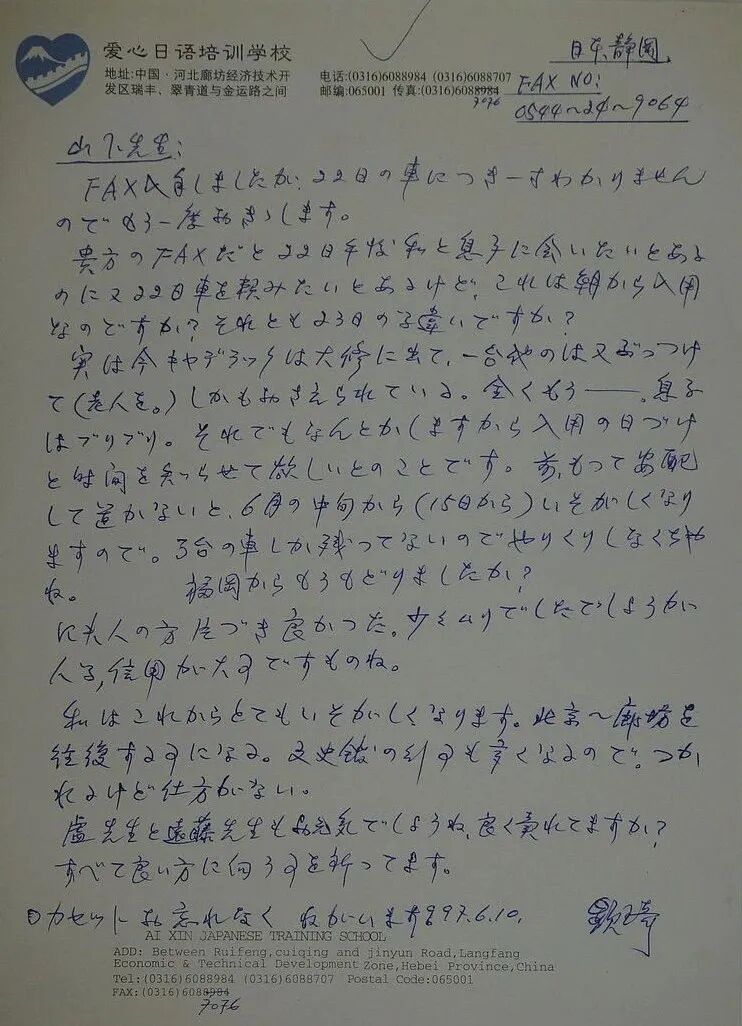 爱心日语培训学校
地址:中国·河北廊坊经济技术开
发区瑞丰、翠青道与金运路之间
电话:(0316)6088984 (0316)6088707
邮编:065001 传真:(0316)6088984
7076
日本静岡
FAX NO:
0544~24~9064
山下先生:
FAX入手しましたが、22日の車につき一寸わかりません
のでもう一度おききします。
貴方のFAXだと22日午後私と息子に会いたいとある
のに又22日車を頼みたいとあるけど、これは朝から入用
なのですか?それとも23日の間違いですか?
実は今キャデラックは大修に出て、一台他のは又ぶっつけ
て(老人を。)しかもおさえられている。全くもう——。息子
はブリブリ。それでもなんとかしますから入用の日づけ
と时间を知らせて欲しいとのことです。前もって安配
して置かないと、6月の中旬から(15日から)いそがしくなり
ますので。3台の車しか残ってないのでやりくりしなくちゃ
ね。 福岡からもうもどりましたか?
の方片づき良かった。少々ムリでしたでしょうが
人は信用が大事ですものね。
私はこれからとてもいそがしくなります。北京~廊坊を
往復する事になる。文史館の行事も多くなるので。つか
れるけど仕方がない。
盧先生と遠藤先生もお元気でしょうね、良く売れてますか?
すべて良い方に向う事を祈ってます。
カセットお忘れなく ねがいます 997.6.10. 顕琦
AI XIN JAPANESE TRAINING SCHOOL
ADD: Between Ruifeng,cuiqing and jinyun Road,Langfang
Economic & Technical Development Zone,Hebei Province,China
Tel:(0316)6088984 (0316)6088707 Postal Code:065001
FAX:(0316)6088984
7076